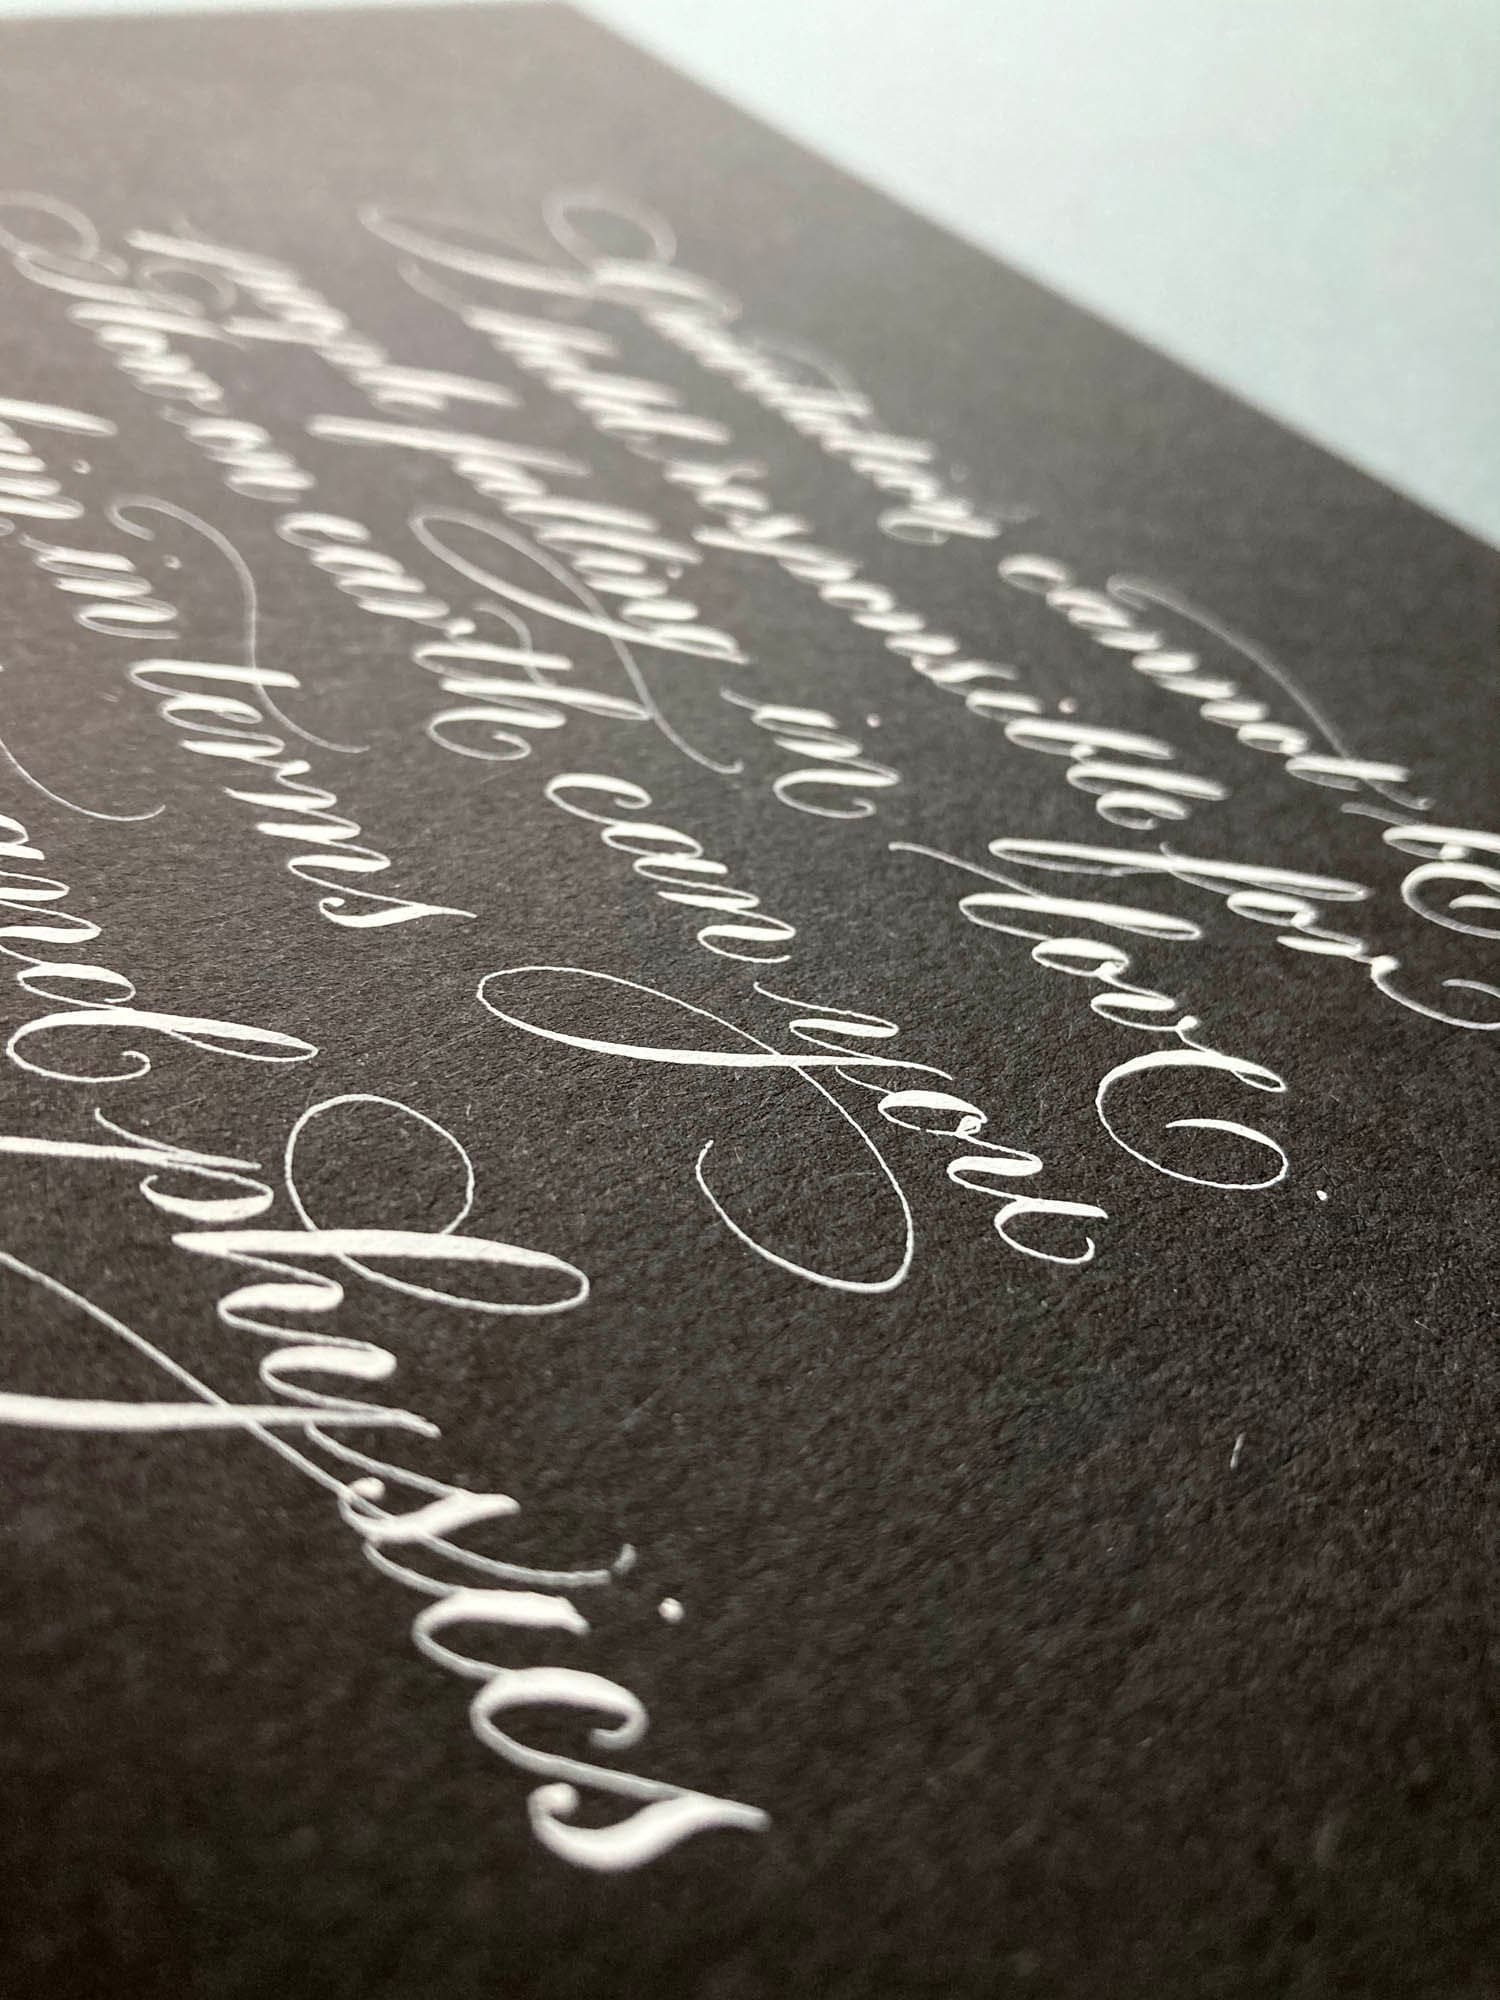 Gravitation cannot be
held responsible for
people falling in love.
How on earth can you
in terms
and physics